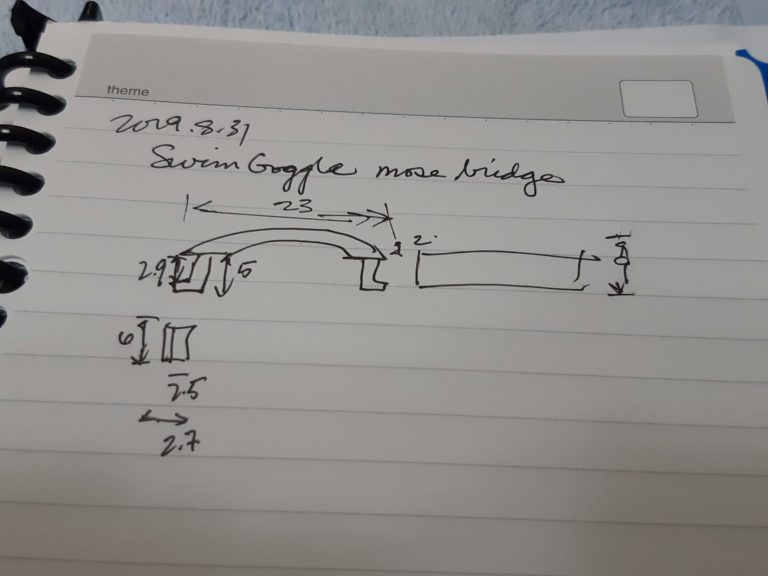 theme
2019.8.31
Swim Goggle nose bridges
23
2.9
5
2
2
8
6
2.5
2.7